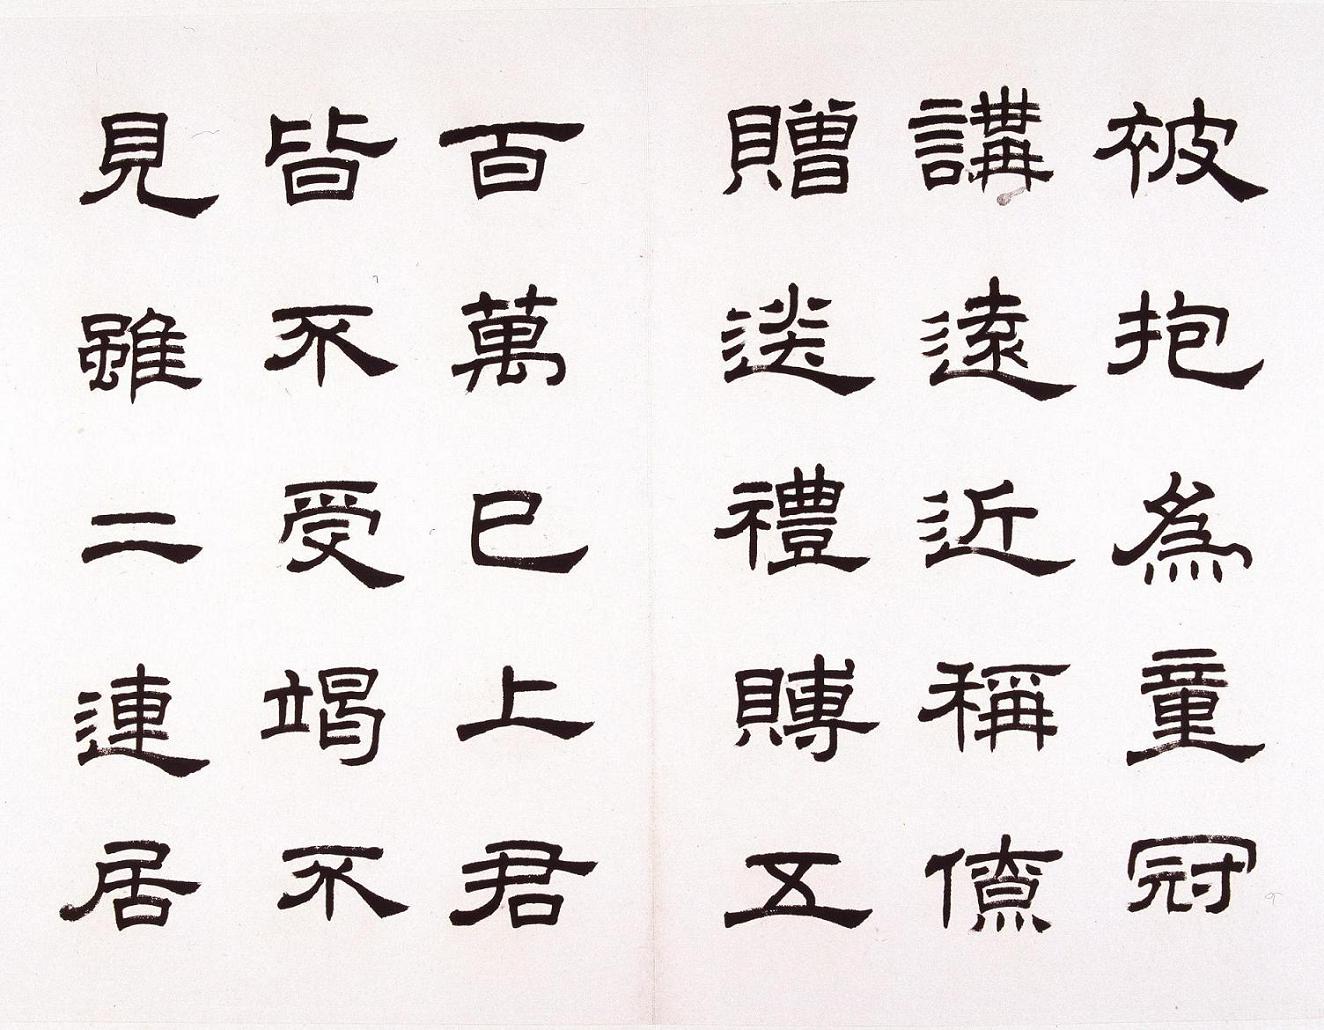 被抱為童冠
講遠近稱僚
贈送禮賻五
百萬已上君
皆不受竭不
見雖二連居